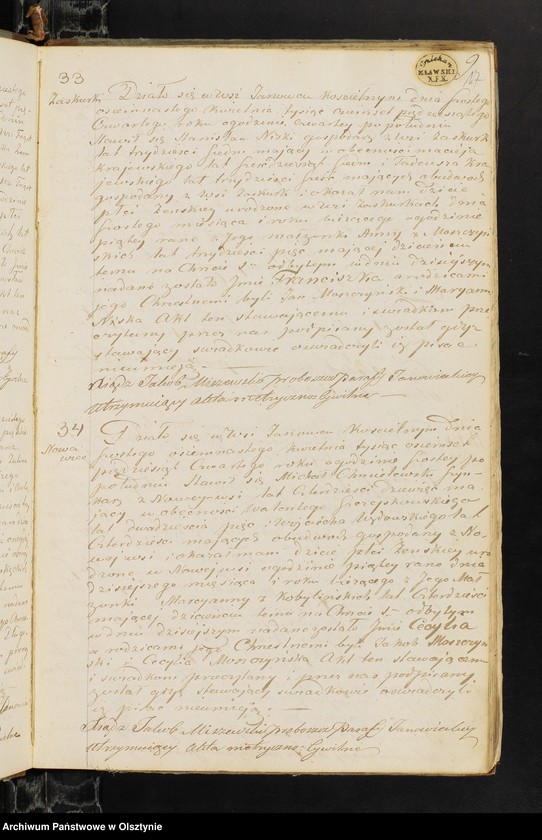 33
Zaskurki
Działo się w Wsi Janowcu Kościelnym dnia szóstego
osiemnastego Kwietnia tysiąc osiemset pięćdziesiątego
Czwartego roku o godzinie czwartey po południu
Stawił się Stanisław Niski gospodarz z wsi Zaskurk
lat trzydzieści siedm maiący w obecności Macieja
Krajewskiego lat siedm i Tadeusza Kra
jewskiego lat trzydzieści sześć maiących obudwóch
gospodarzy z wsi Zaskurk i okazał nam dziecie
płci żeńskiey urodzone w wsi Zaskurkach dnia
szóstego miesiąca i roku bieżącego o godzinie
piątey rano z Jego małżonki Anny z Morczyń
skich lat trzydzieści pięć maiącey dziecieciu
temu na Chrzcie S. odbytym w dniu dzisieyszym
nadane zostało Jmie Franciszka a rodzicami
jego Chrzestnemi byli Jan Morczyński i Maryann
Niska Akt ten stawaiącemu i świadkom prze
czytany przez nas podpisany został gdyż
stawaiący świadkowie oświadczyli iż pisać
nieumieją. —
Xiądz Jakub Miszewski proboszcz parafy Janowieckiey
Utrzymuiący Akta metryczno-Cywilne
34
Nowa
wies
Działo się w Wsi Janowcu Kościelnym dnia
szóstego osiemnastego Kwietnia tysiąc osiemset
pięćdziesiąt Czwartego roku o godzinie szóstey po
południu Stawił się Michał Chmielewski
z Noweywsi lat Czterdzieści dziewięć ma
jący w obecności Walentego
lat dwadzieścia pięć i Woyciecha lat
Czterdzieści maiących obudwóch gospodarzy z No
wejwsi i okazał nam dziecie płci żeńskiey uro
dzone w Nowejwsi o godzinie piątey rano dnia
dzisieyszego miesiąca i roku bieżącego z Jego Mał
żonki Maryanny z Kobylińskich lat Czterdzieści
maiącey dziecieciu temu na Chrzcie S. odbytym
w dniu dzisieyszym nadane zostało Jmie Cecylia
a rodzicami jego Chrzestnemi byli Jakub Morczyń
ski i Cecylia Morczyńska Akt ten stawaiącemu
i świadkom przeczytany i przez nas podpisany
został gdyż stawaiący świadkowie oświadczyli
iż pisać nieumieją. —
Xiądz Jakub Miszewski proboszcz Parafy Janowieckiey
Utrzymuiący Akta metryczno-Cywilne
Archiwum Państwowe w Olsztynie